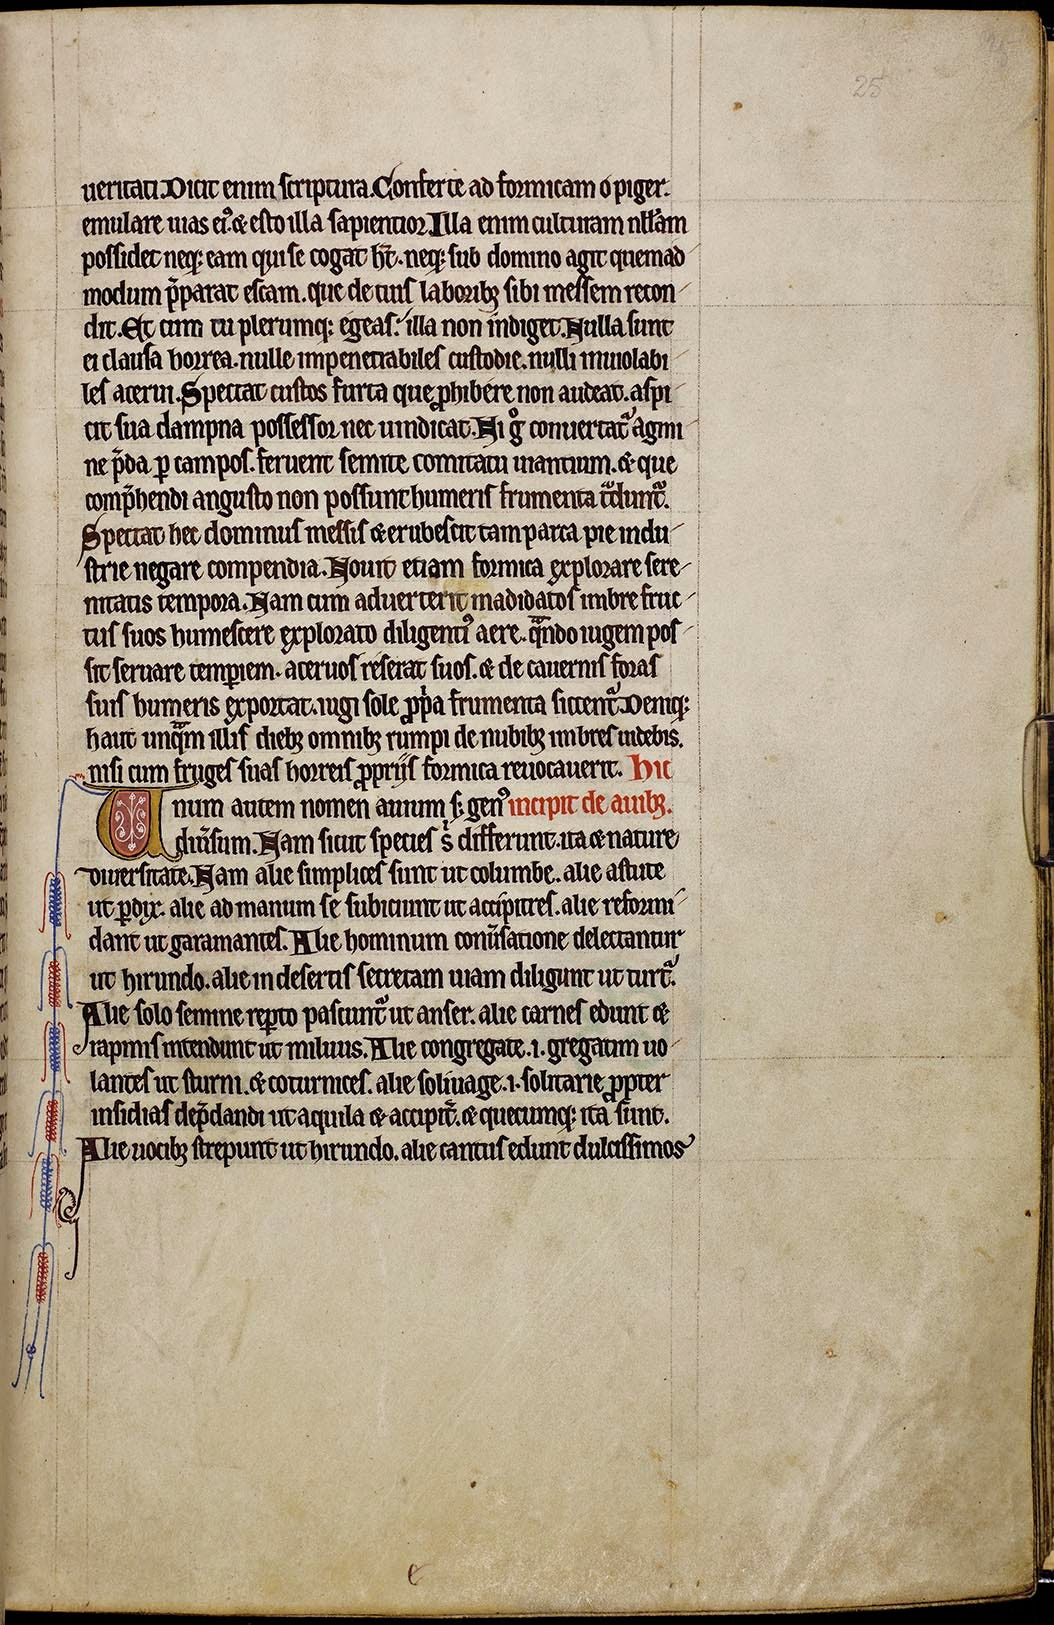 25
ueritati. Dicit enim scriptura. Conferte ad formicam o piger.
emulare uias ei᷒. & esto illa sapientior. Illa enim culturam nłłam
possidet neq; eam qui se cogat ħt. neq; sub domino agit quemad
modum p̄parat escam. que de tuis laborib; sibi messem recon
dit. Et cum tu plerumq; egeas: illa non indiget. Nulla sunt
ei clausa horrea. nulle impenetrabiles custodie. nulli inuiolabi
les acerui. Spectat custos furta que ꝓhibere non audeat. aspi
cit sua dampna possessor nec uindicat. Ni gͦ conuertat᷑ agmi
ne p̄da ꝑ campos. feruent semite comitatu uiantium. & que
comp̄hendi angusto non possunt humeris frumenta tᷓdunt᷑.
Spectat hec dominus messis & erubescit tam parca pie indu
strie negare compendia. Nouit etiam formica explorare sere
nitatis tempora. Nam cum aduerterit madidatos imbre fruc
tus suos humescere explorato diligenti᷒ aere. qᷓndo iugem pos
sit seruare temꝑiem. aceruos reserat suos. & de cauernis foras
suis humeris exportat. iugi sole ꝓpͥa frumenta siccent᷑. Deniq;
haut unqᷓm illis dieb; omnib; rumpi de nubib; imbres uidebis.
nisi cum fruges suas horreis ꝓprijs formica reuocauerit. Hic
Unum autem nomen auium s; gen᷒ incipit de auib;.
diu̾sum. Nam sicut species s̾ differunt. ita & nature
diuersitate. Nam alie simplices sunt ut columbe. alie astute
ut ꝑdix. alie ad manum se subiciunt ut accipitres. alie reformi
dant ut garamantes. Alie hominum conu̾satione delectantur
ut hirundo. alie in desertis secretam uiam diligunt ut turt᷑.
Alie solo semine reꝑto pascunt᷑ ut anser. alie carnes edunt &
rapinis intendunt ut miluus. Alie congregate .i. gregatim uo
lantes ut sturni. & coturnices. alie soliuage .i. solitarie ꝓpter
insidias dep̄dandi ut aquila & accipit̾. & quecumq; ita sunt.
Alie uocib; strepunt ut hirundo. alie cantus edunt dulcissimos
e